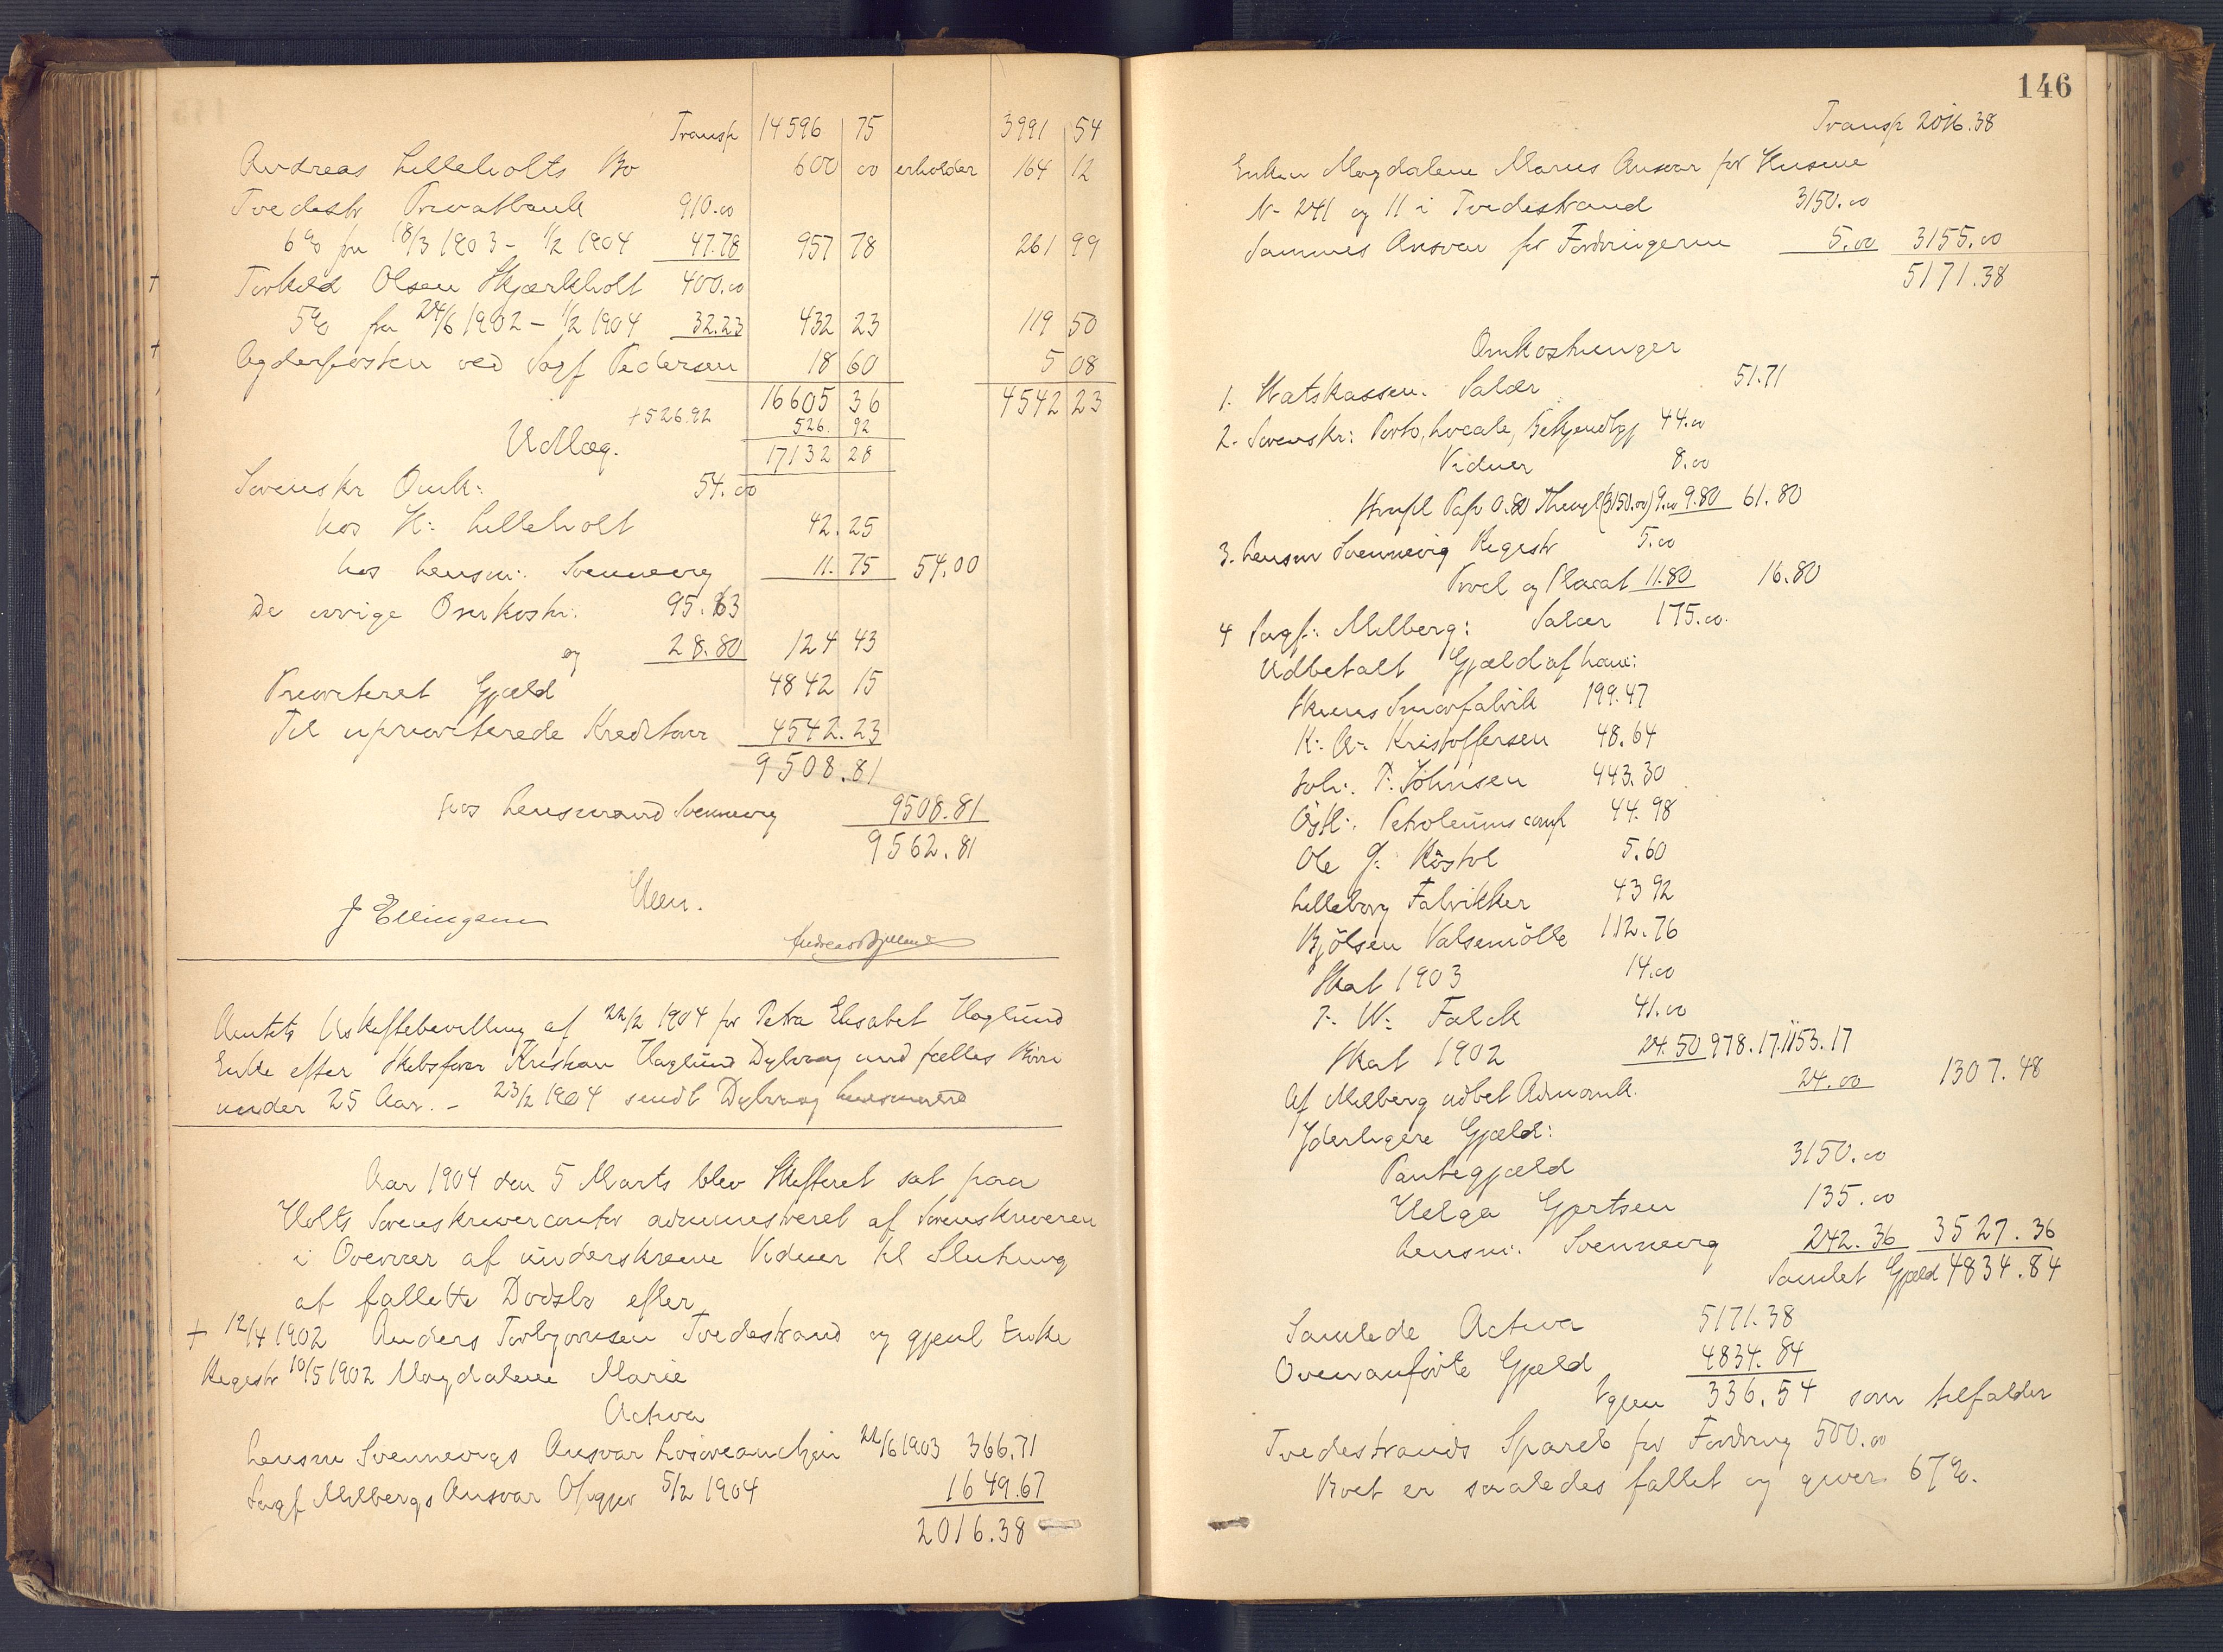 Transp 14596 75 3991 54
Andreas Lilleholts Bo 600 00 erholder 164 12
Tvedestr Privatbank 910.00
6% fra 18/3 1903 - 1/2 1904 47.78 957 78 261 99
Torkild Olsen Skjærkholt 400.00
5% fra 24/6 1902 - 1/2 1904 32.23 432 23 119 50
Agderposten ved Sagf Pedersen 18 60 5 08
16605 36 4542 23
+526.92 526. 92
Udlæg. 17132 28
Sorenskr Omk: 54.00
hos H: Lilleholt 42.25
hos Lensm: Svennevig 11.75 54.00
De øvrige Omkostn: 95.63
og 28.80 124 43
Prioriteret Gjæld 4842 15
Til uprioriterede Kreditorer 4542.23
9508.81
hos Lensmand Svennevig 9508.81
9562.81
Ueen.
J Ellingsen
Amtets Uskiftebevilling af 22/2 1904 for Petra Elisabet Haglund
Enke efter Skibsfører Kristian Haglund Dybvaag med fælles Børn
under 25 Aar. - 23/2 1904 sendt Dybvaag Lensmand
Aar 1904 den 5 Marts blev Skifteret sat paa
Holts Sorenskrivercontor administreret af Sorenskriveren
i Overvær af underskrevne Vidner til Slutning
at fallitte Dødsbo efter
+ 12/4 1902 Anders Torbjørnsen Tvedestrand og gjenl Enke
Registr 10/5 1902 Magdalene Marie
Activa
Lensm Svennevigs Ansvar Løsøreauctjon 22/6 1903 366.71
Sagf Milbergs Ansvar Opgjør 5/2 1904 1649.67
2016.38
146
Transp 2016.38
Enken Magdalene Maries Ansvar for Husene
N- 241 og 11 i Tvedestrand 3150.00
Sammes Ansvar for Fordringerne 5.00 3155.00
5171.38
Omkostninger
1. Statskassen. Salær 51.71
2. Sorenskr: Porto, Locale, Bekjendtgj 44.00
Vidner 8.00
Stmpl Pap 0.80 Thingl (3150.00) 9.00 9.80 61.80
3. Lensm Svennevig Registr 5.00
Provl og Placat 11.80 16.80
4 Sagf: Milberg: Salær 175.00.
Udbetalt Gjæld af ham:
Skiens Smørfabrik 199.47
K: A: Kristoffersen 48.64
Joh: P. Johnsen 443.30
Østl: Petroleums comp 44.98
Ole J: Røstol 5.60
Lilleborg Fabrikker 43 92
Bjølsen Valsemølle 112.76
Skat 1903 14.00
P. W: Falck 41.00
Skat 1902 24.50 978.17 1153.17
Af Milberg udbet Admomk. 24.00 1307.48
Yderligere Gjæld:
Pantegjæld 3150.00
Helga Gjertsen 135.00
Lensm: Svennevig 242.36 3527.36
Samlet Gjæld 4834.84
Samlede Activa 5171.38
Ovenanførte Gjæld 4834.84
Igjen 336.54 som tilfalder
Tvedestrands Spareb for Fordring 500.00
Boet er saaledes fallit og giver 67%.